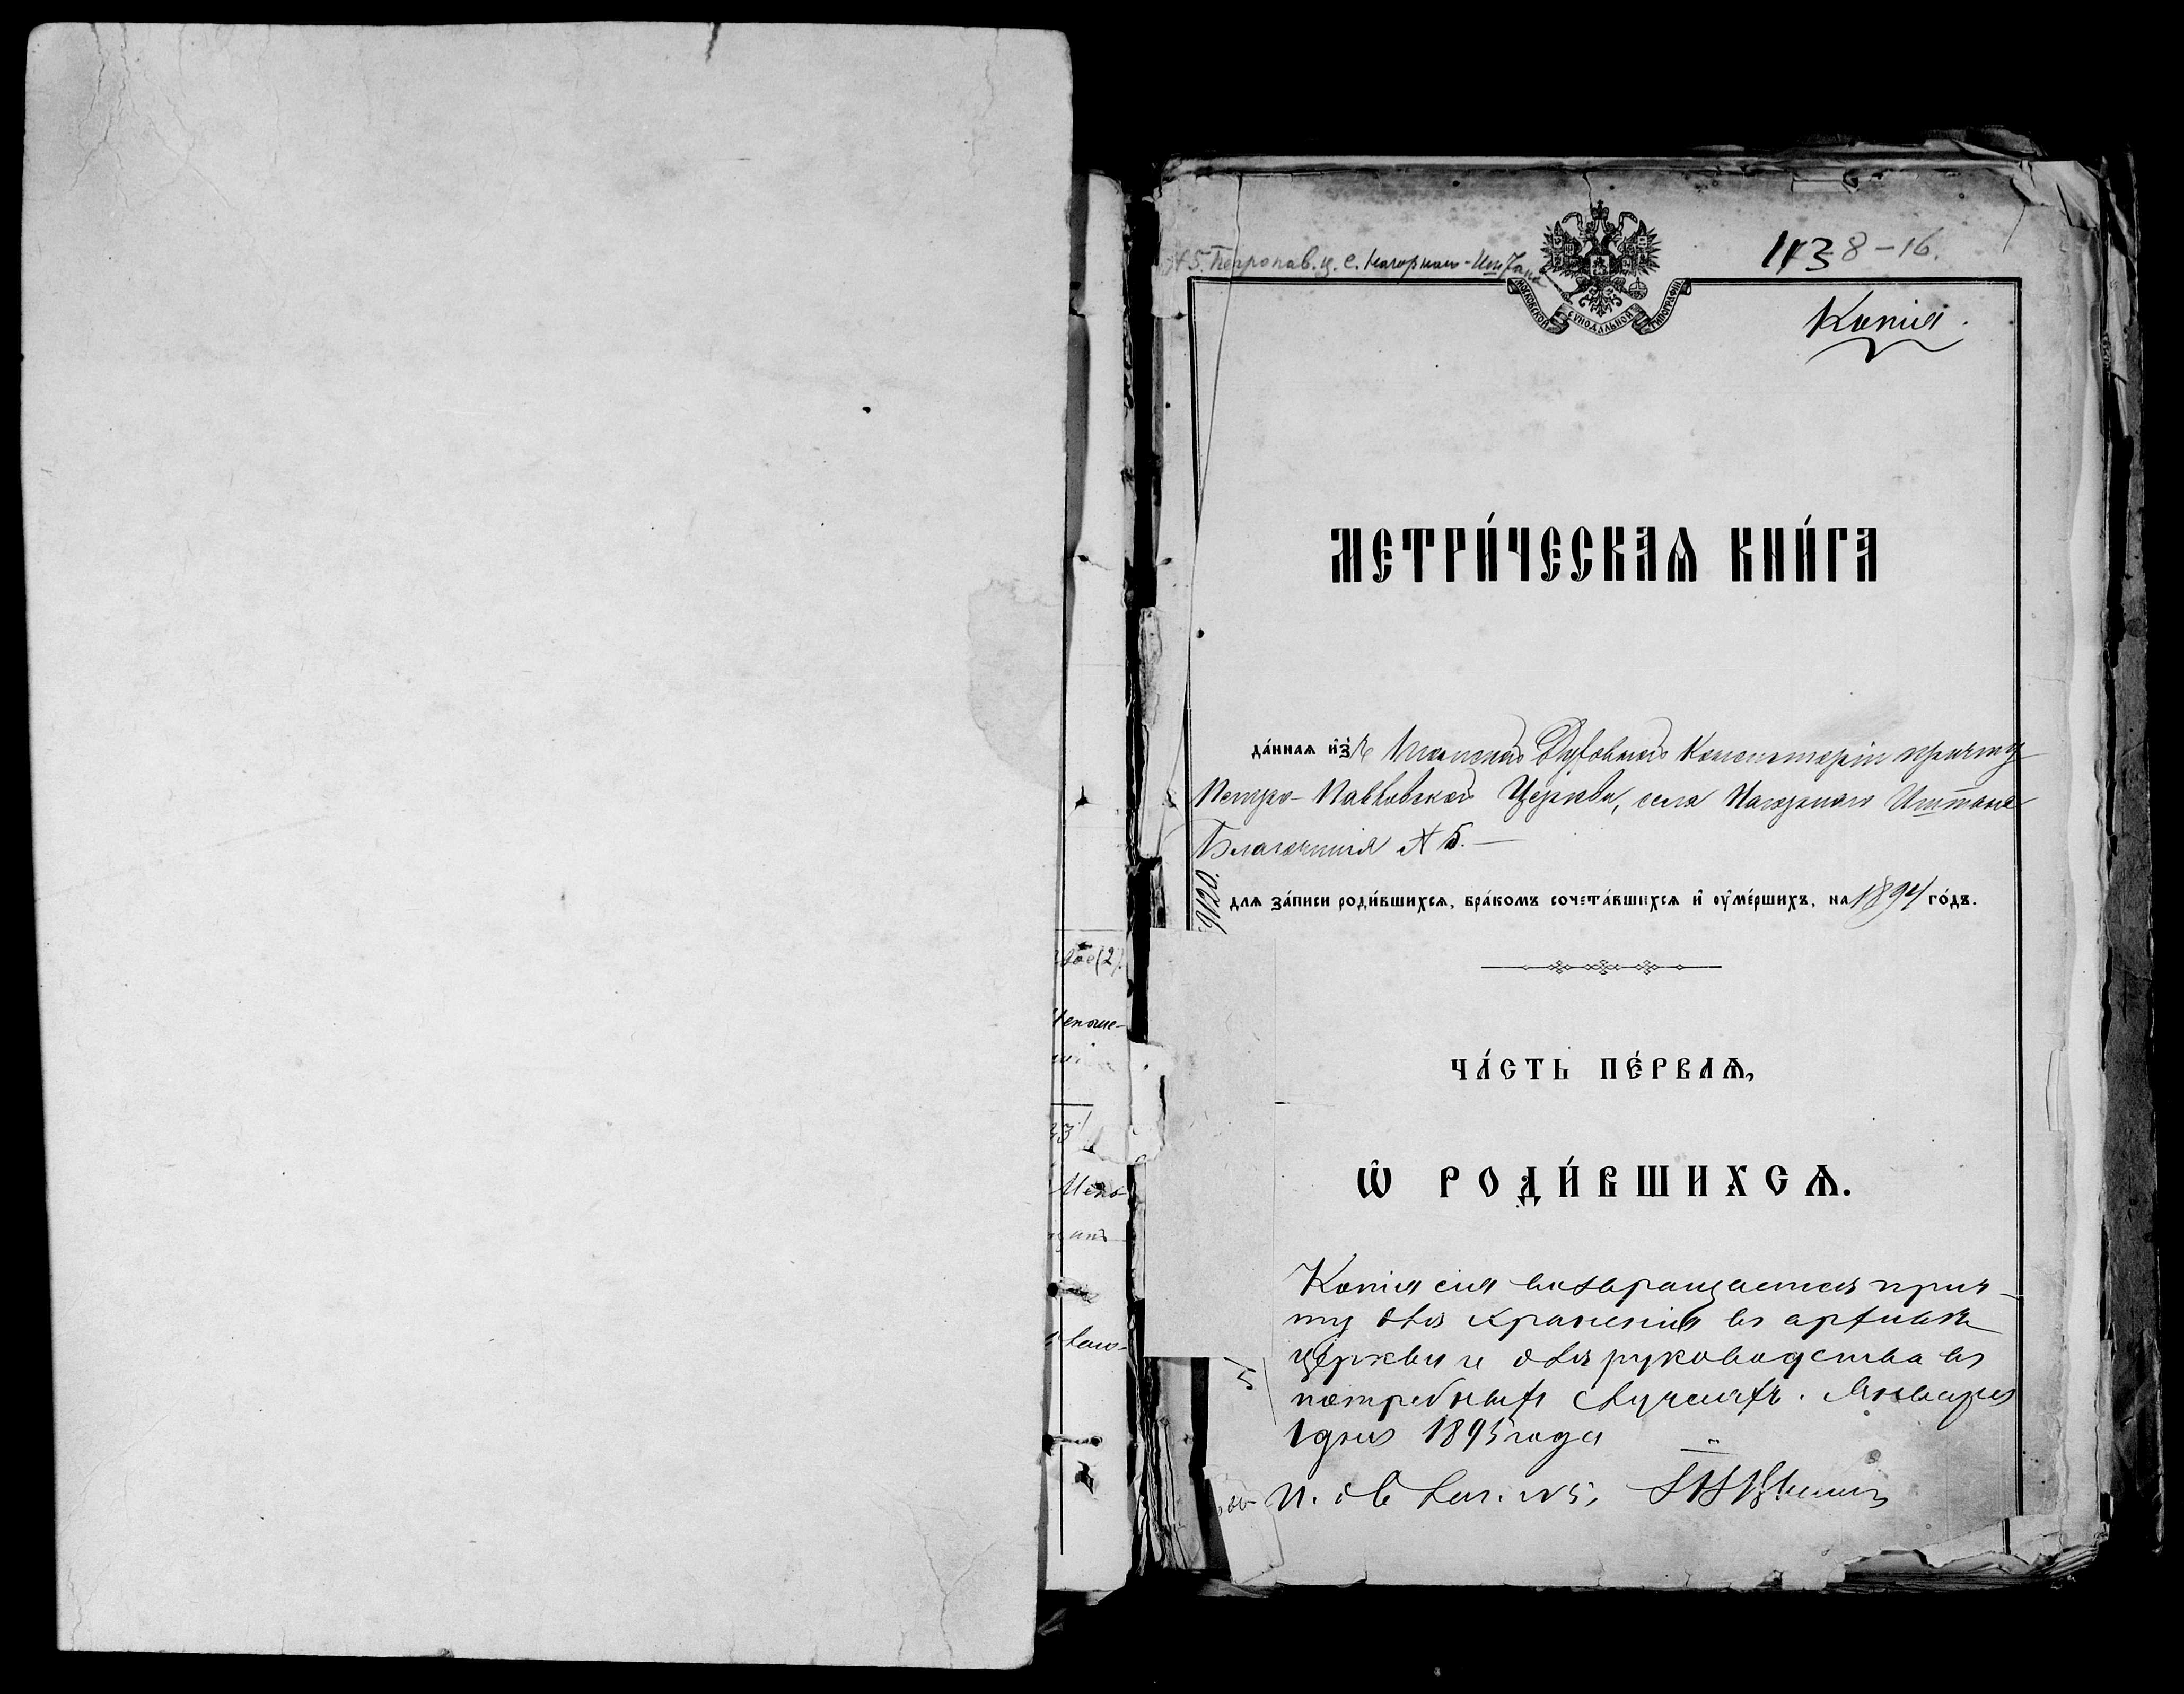 № 5. Петропав. ц. с. Нагорнаго-Иштана
1138-16.
МОСКОВСКОЙ СѴНОДАЛЬНОЙ ТИПОГРАФІИ
Копія.
МЕТРИ́ЧЕСКАѦ КНИ́ГА
да́ннаѧ и҆зъ Томской Духовной Консисторіи причту
Петро-Павловской Церкви, села Нагорнаго Иштана
Благочинія № 5.—
9120.
для за́писи роди́вшихсѧ, бра́комъ сочета́вшихсѧ и҆ оу҆ме́ршихъ, на 1894 го́дъ.
ЧА́СТЬ ПЕ́РВАѦ,
Ѡ҆ РОДИ́ВШИХСѦ.
Копія сія возвращается прич-
ту для храненія въ архивѣ
церкви и для руководства въ
потребныхъ случаяхъ. Января
1 дня 1895 года
И. д. Благ. № 5,